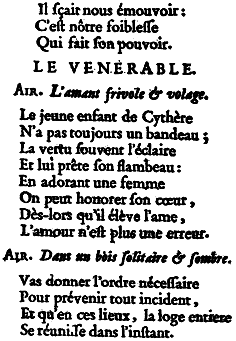 Il ſçait nous émouvoir ;
C'eſt nôtre foibleſſe
Qui fait ſon pouvoir.
LE VENÉRABLE.
AIR. L'amant frivole & volage.
Le jeune enfant de Cythère
N'a pas toujours un bandeau ;
La vertu ſouvent l'éclaire
Et lui prête ſon flambeau :
En adorant une femme
On peut honorer ſon cœur,
Dès-lors qu'il élève l'ame,
L'amour n'eſt plus une erreur.
AIR. Dans un bois ſolitaire & ſombre.
Vas donner l'ordre néceſſaire
Pour prévenir tout incident,
Et qu'en ces lieux, la loge entiere
Se réuniſſe dans l'inſtant.